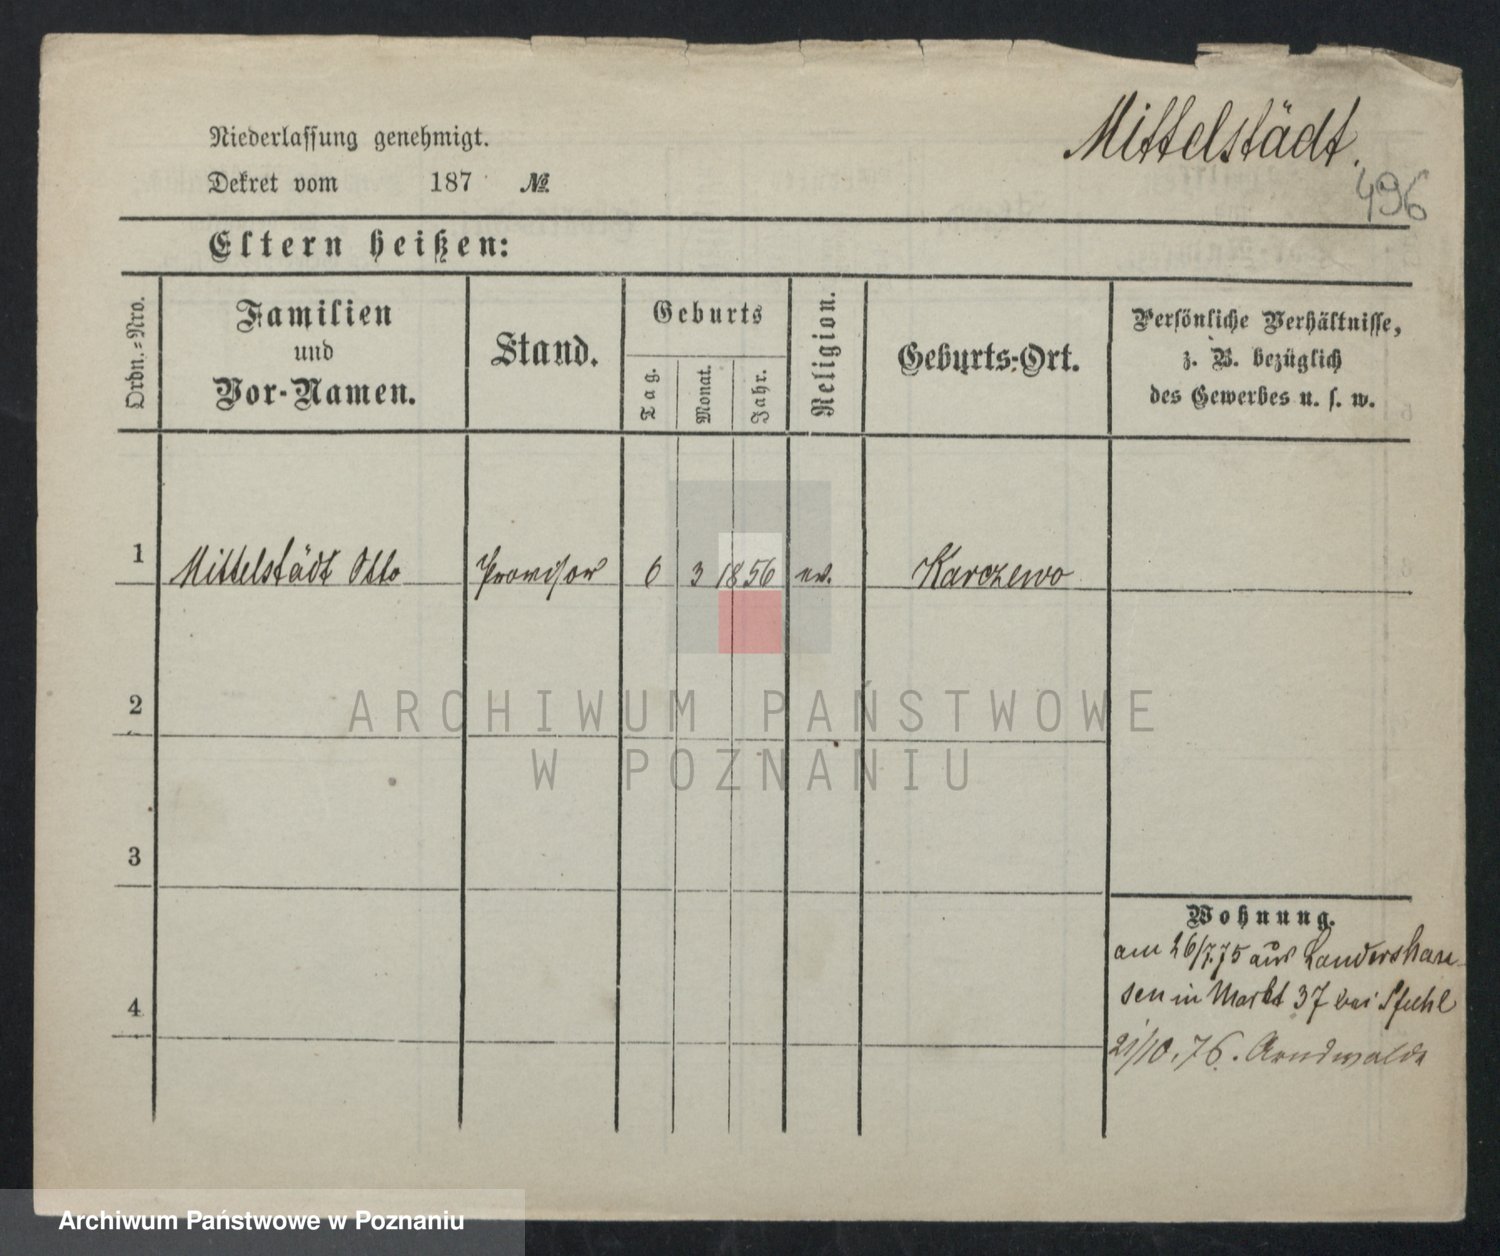 Mittelstädt.
496
Niederlassung genehmigt.
Dekret vom 187 №
Eltern heißen:
Ordn.-Nro.
Familien
und
Vor-Namen.
Stand.
Geburts
Tag.
Monat.
Jahr.
Religion.
Geburts-Ort.
Persönliche Verhältnisse,
z. B. bezüglich
des Gewerbes u. s. w.
1 Mittelstädt Otto Provisor 6 3 1856 ev. Karczewo
2
3
4
Wohnung.
am 26/7.75 aus Landershau-
sen in Markt 37 bei Pfuhl
21/10.76. Arndwalde
ARCHIWUM PAŃSTWOWE
W POZNANIU
Archiwum Państwowe w Poznaniu